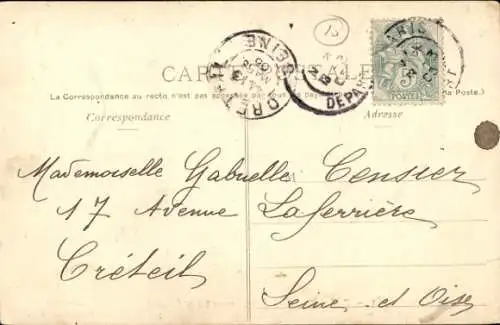 CARTE POSTALE
La Correspondance au recto n'est pas acceptée par tous les pays
la Poste.)
Correspondance
Adresse
PARIS
DEPART
CRETEIL
SEINE
13
5
POSTES
Mademoiselle Gabrielle Censier
17 Avenue Laferrière
Créteil
Seine et Oise